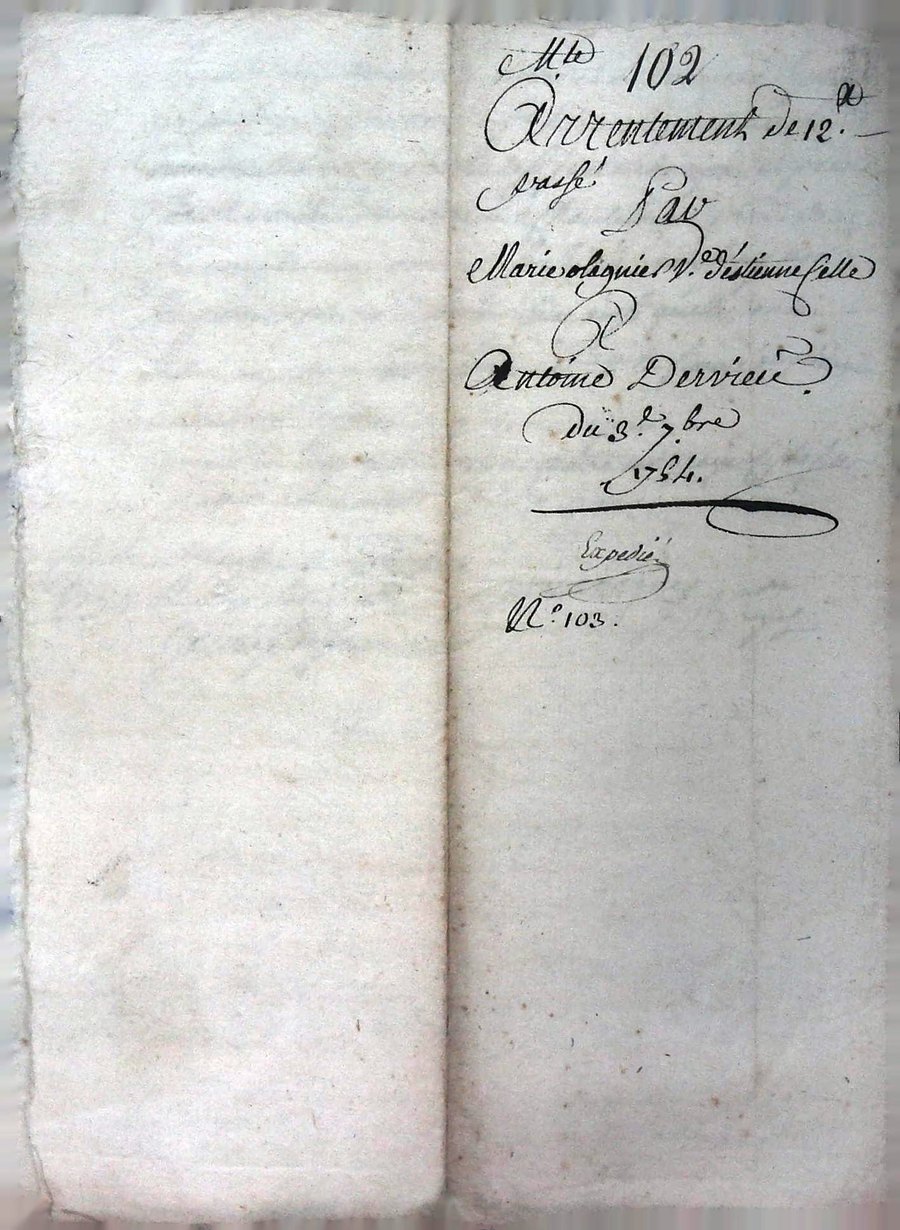 Mte 102
Arrentement de 12.#
passé
Par
Marie olagnier Ve. d'estienne Celle
A
Antoine Dervieu.
du 3e. 7.bre
1784.
Expedié
No. 103.